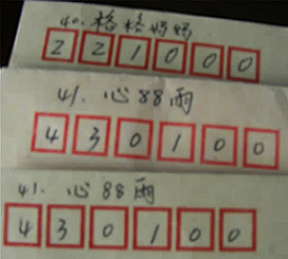 40. 格格妈妈
221000
41. 心88雨
430100
41. 心88雨
430100